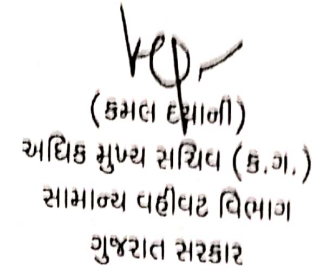 (કમલ દયાની)
અધિક મુખ્ય સચિવ (ક.ગ.)
સામાન્ય વહીવટ વિભાગ
ગુજરાત સરકાર